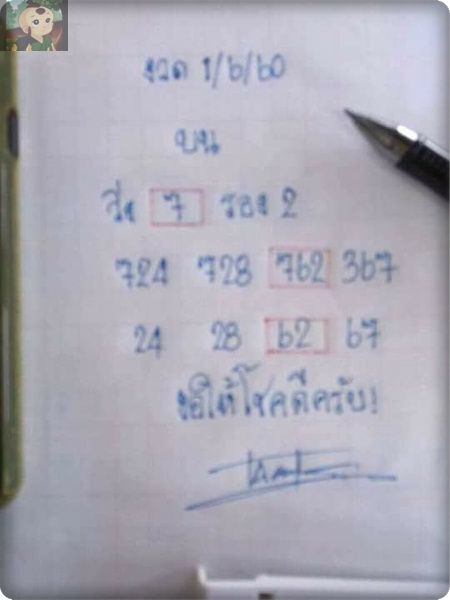 งวด 1/6/60
บน
วิ่ง 7 รอง 2
724 728 762 367
24 28 62 67
ขอให้โชคดีครับ!